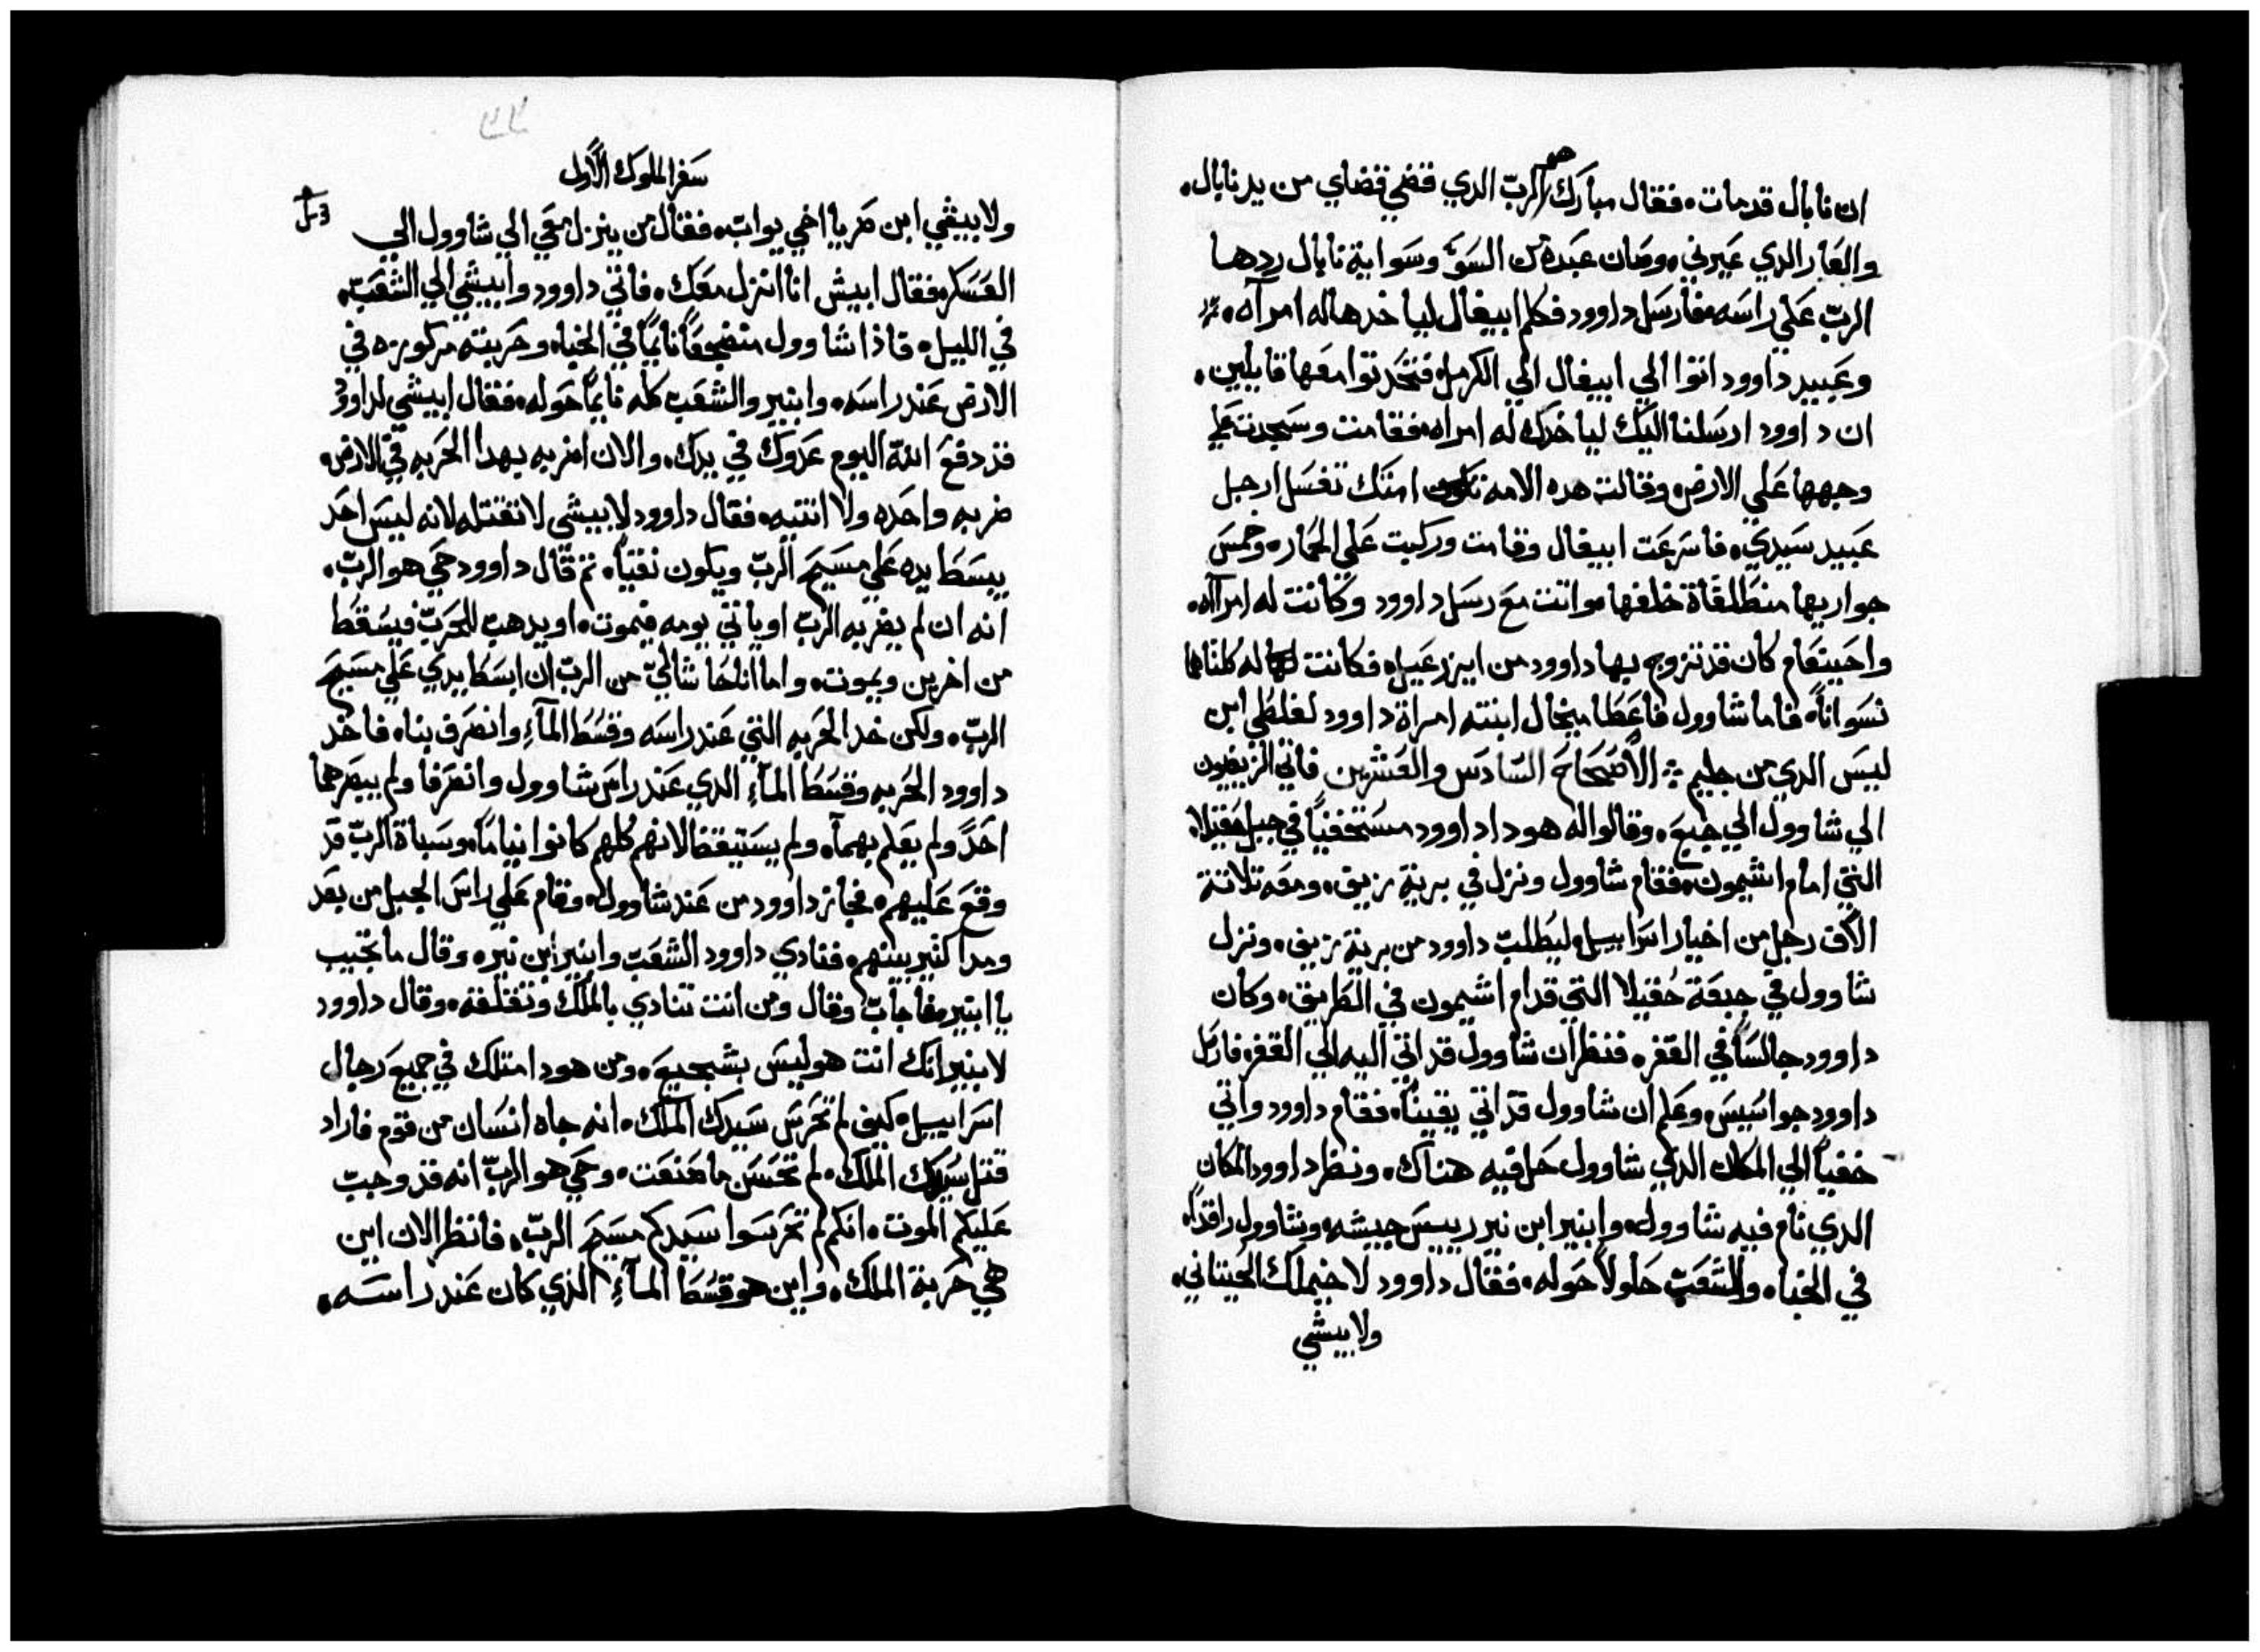 ان نابال قد مات. فقال مبارك هو الرب الدي قضي قضاي من يد نابال.
والعار الدي عيرني. وصان عبده من السوَ وسوايه نابال ردها
الرب علي راسه. فارسل داوود فكلم ابيغال لياخدها له امراه.
وعبيد داوود اتوا الي ابيغال الي الكرمل. فتحدتوا معها قايلين.
ان داوود ارسلنا اليك لياخدك له امراه. فقامت وسجدت علي
وجهها علي الارض. وقالت هده الامه تكون امتك تغسل ارجل
عبيد سيدي. فاسرعت ابيغال وقامت وركبت علي الحمار. وخمس
جواريها منطلقاة خلفها. واتت مع رسل داوود وكانت له امراه.
واحينعام كان قد تزوج بها داوود من ايزرعيل. فكانت له كلتاها
نسواناً. فاما شاوول فاعطا ميخال ابنته امراة داوود لفلطي ابن
ليس الدي من جليم الاصحاح السادس والعشرين فاتي الزيفيون
الي شاوول الي جبع. وقالوا له هودا داوود مستخفياً في جبل حقيلا
التي امام اشيمون. فقام شاوول ونزل في برية زيق. ومعه تلاتة
الاف رجل من اخيار اسراييل. ليطلب داوود من برية زيف. ونزل
شاوول في جبعة حقيلا التي قدام اشيمون في الطريق. وكان
داوود جالساً في القفر. فنظر ان شاوول قد اتي اليه الي القفر. فارسل
داوود جواسيس وعلم ان شاوول قد اتي يقيناً. فقام داوود واتي
خفياً الي المكان الدي شاوول حل فيه هناك. ونظر داوود المكان
الدي نام فيه شاوول. وابنير ابن نير رييس جيشه. وشاوول راقداً
في الخباء. والشعب حلولاً حوله. فقال داوود لاخيملك الحيتاني.
ولابيشي
سفر الملوك الاول
ولابيشي ابن صريا اخي يواب. فقال من ينزل معي الي شاوول الي
العسكر. فقال ابيش انا انزل معك. فاتي داوود وابيشي الي الشعب.
في الليل. فاذا شاوول متضجعاً نايماً في الخباء وحربته مركوزه في
الارض عند راسه. وابنير والشعب كله نايماً حوله. فقال ابيشي لداوود
قد دفع الله اليوم عدوك في يدك. والان اضربه بهدا الحربه في الارض.
ضربه واحده ولا انتيه. فقال داوود لابيشي لا تقتله لانه ليس احد
يبسط يده علي مسيح الرب ويكون نقياً. تم قال داوود حي هو الرب.
انه ان لم يضربه الرب او ياتي يومه فيموت. او يدهب للحرب فيسقط
من اخرين ويموت. واما انا فحاشا لي من الرب ان ابسط يدي علي مسيح
الرب. ولكن خد الحربه التي عند راسه وقسط المآء وانصرف بنا. فاخد
داوود الحربه وقسط المآء الدي عند راس شاوول وانصرفا ولم يبصرهما
احدً ولم يعلم بهما. ولم يستيقظ لانهم كلهم كانوا نياماً. وسباة الرب قد
وقع عليهم. فجاز داوود من عند شاوول. وقام علي راس الجبل من بعد
ومدا كتير بينهم. فنادي داوود الشعب وابنير ابن نير. وقال ما تجيب
يا ابنير. فاجاب وقال ومن انت تنادي بالملك وتقلقه. وقال داوود
لابنير انك انت هو ليس بشجيع. ومن هودا متلك في جميع رجال
اسراييل. كيف لم تحرس سيدك الملك. انه جاء انسان من قوم فاراد
قتل سيدك الملك. لم تحسن ما صنعت. وحي هو الرب انه قد وجب
عليكم الموت. انكم لم تحرسوا سيدكم مسيح الرب. فانظر الان اين
هي حربة الملك. واين هو قسط المآء الذي كان عند راسه.